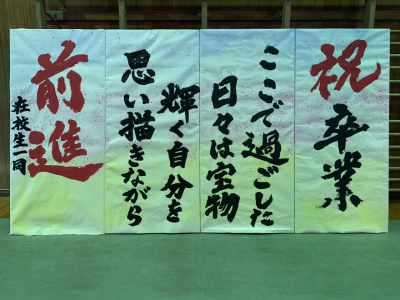 祝
卒業
ここで過ごした
日々は宝物
輝く自分を
思い描きながら
前進
在校生一同